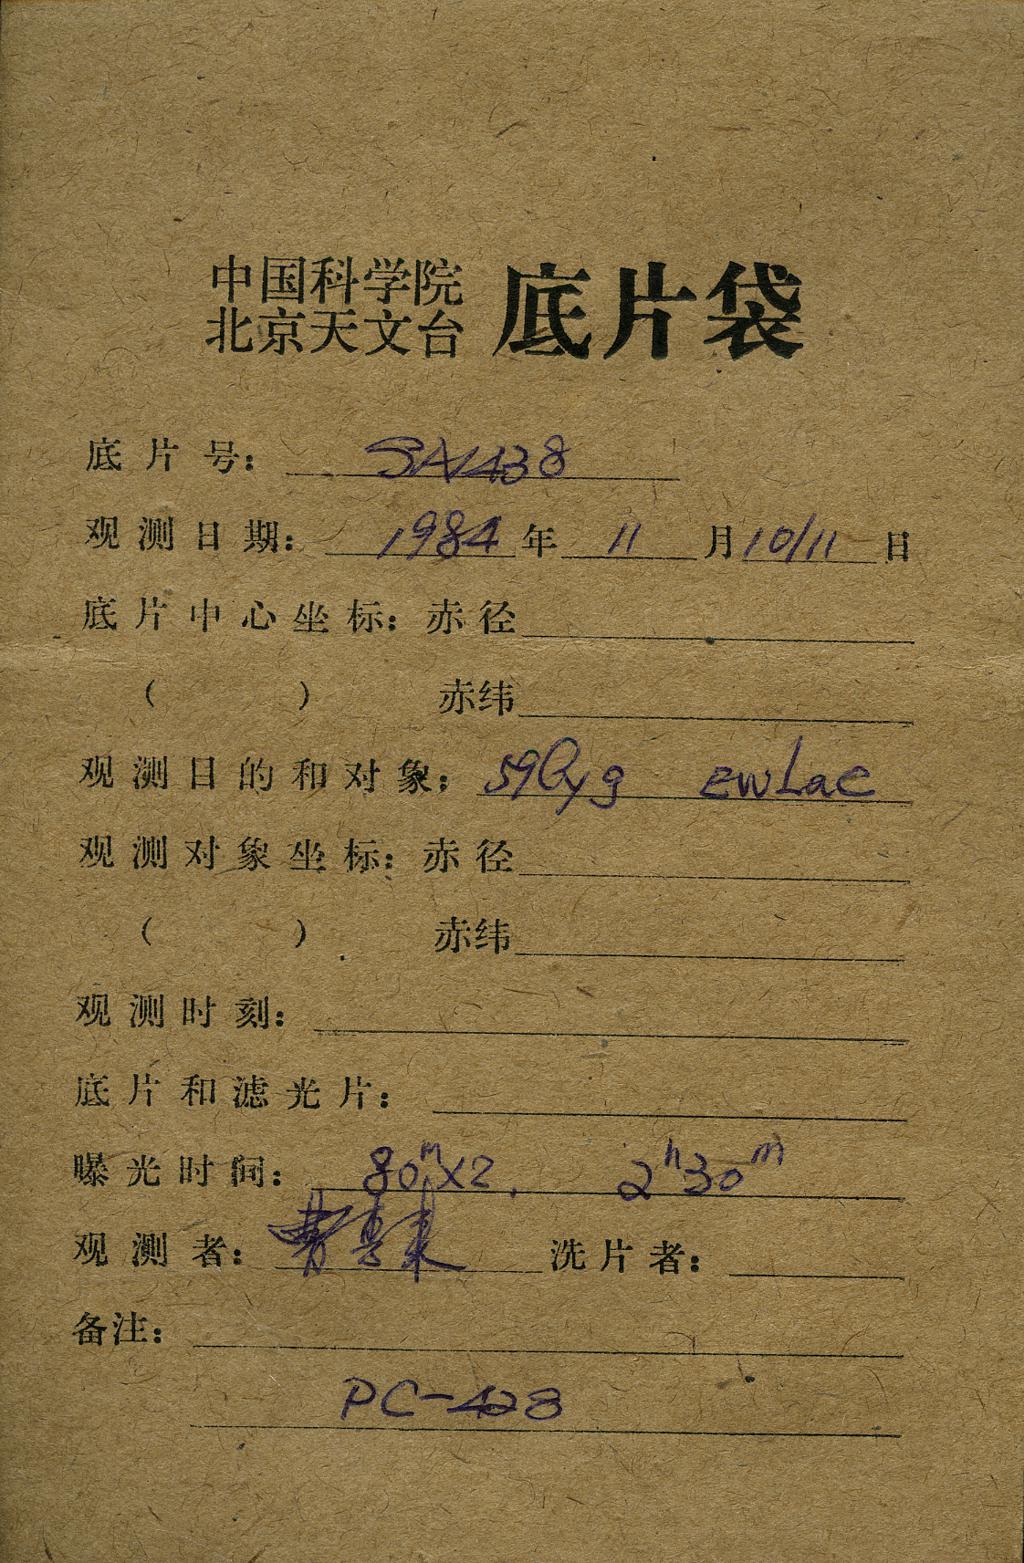 中国科学院
北京天文台 底片袋
底片号: SA1438
观测日期: 1984 年 11 月 10/11 日
底片中心坐标: 赤径
( ) 赤纬
观测目的和对象: 59Cyg ewLac
观测对象坐标: 赤径
( ) 赤纬
观测时刻:
底片和滤光片:
曝光时间: 80ᵐX2, 2ʰ30ᵐ
观测者: 曹 洗片者:
备注:
PC-428